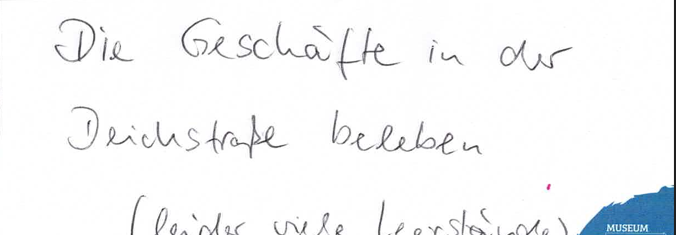 Die Geschäfte in der
Deichstraße beleben
(leider viele Leerstände)
MUSEUM